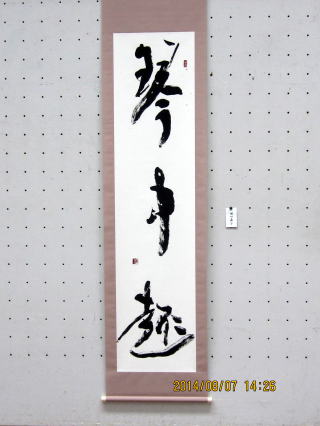 琴中趣
2014/09/07 14:26